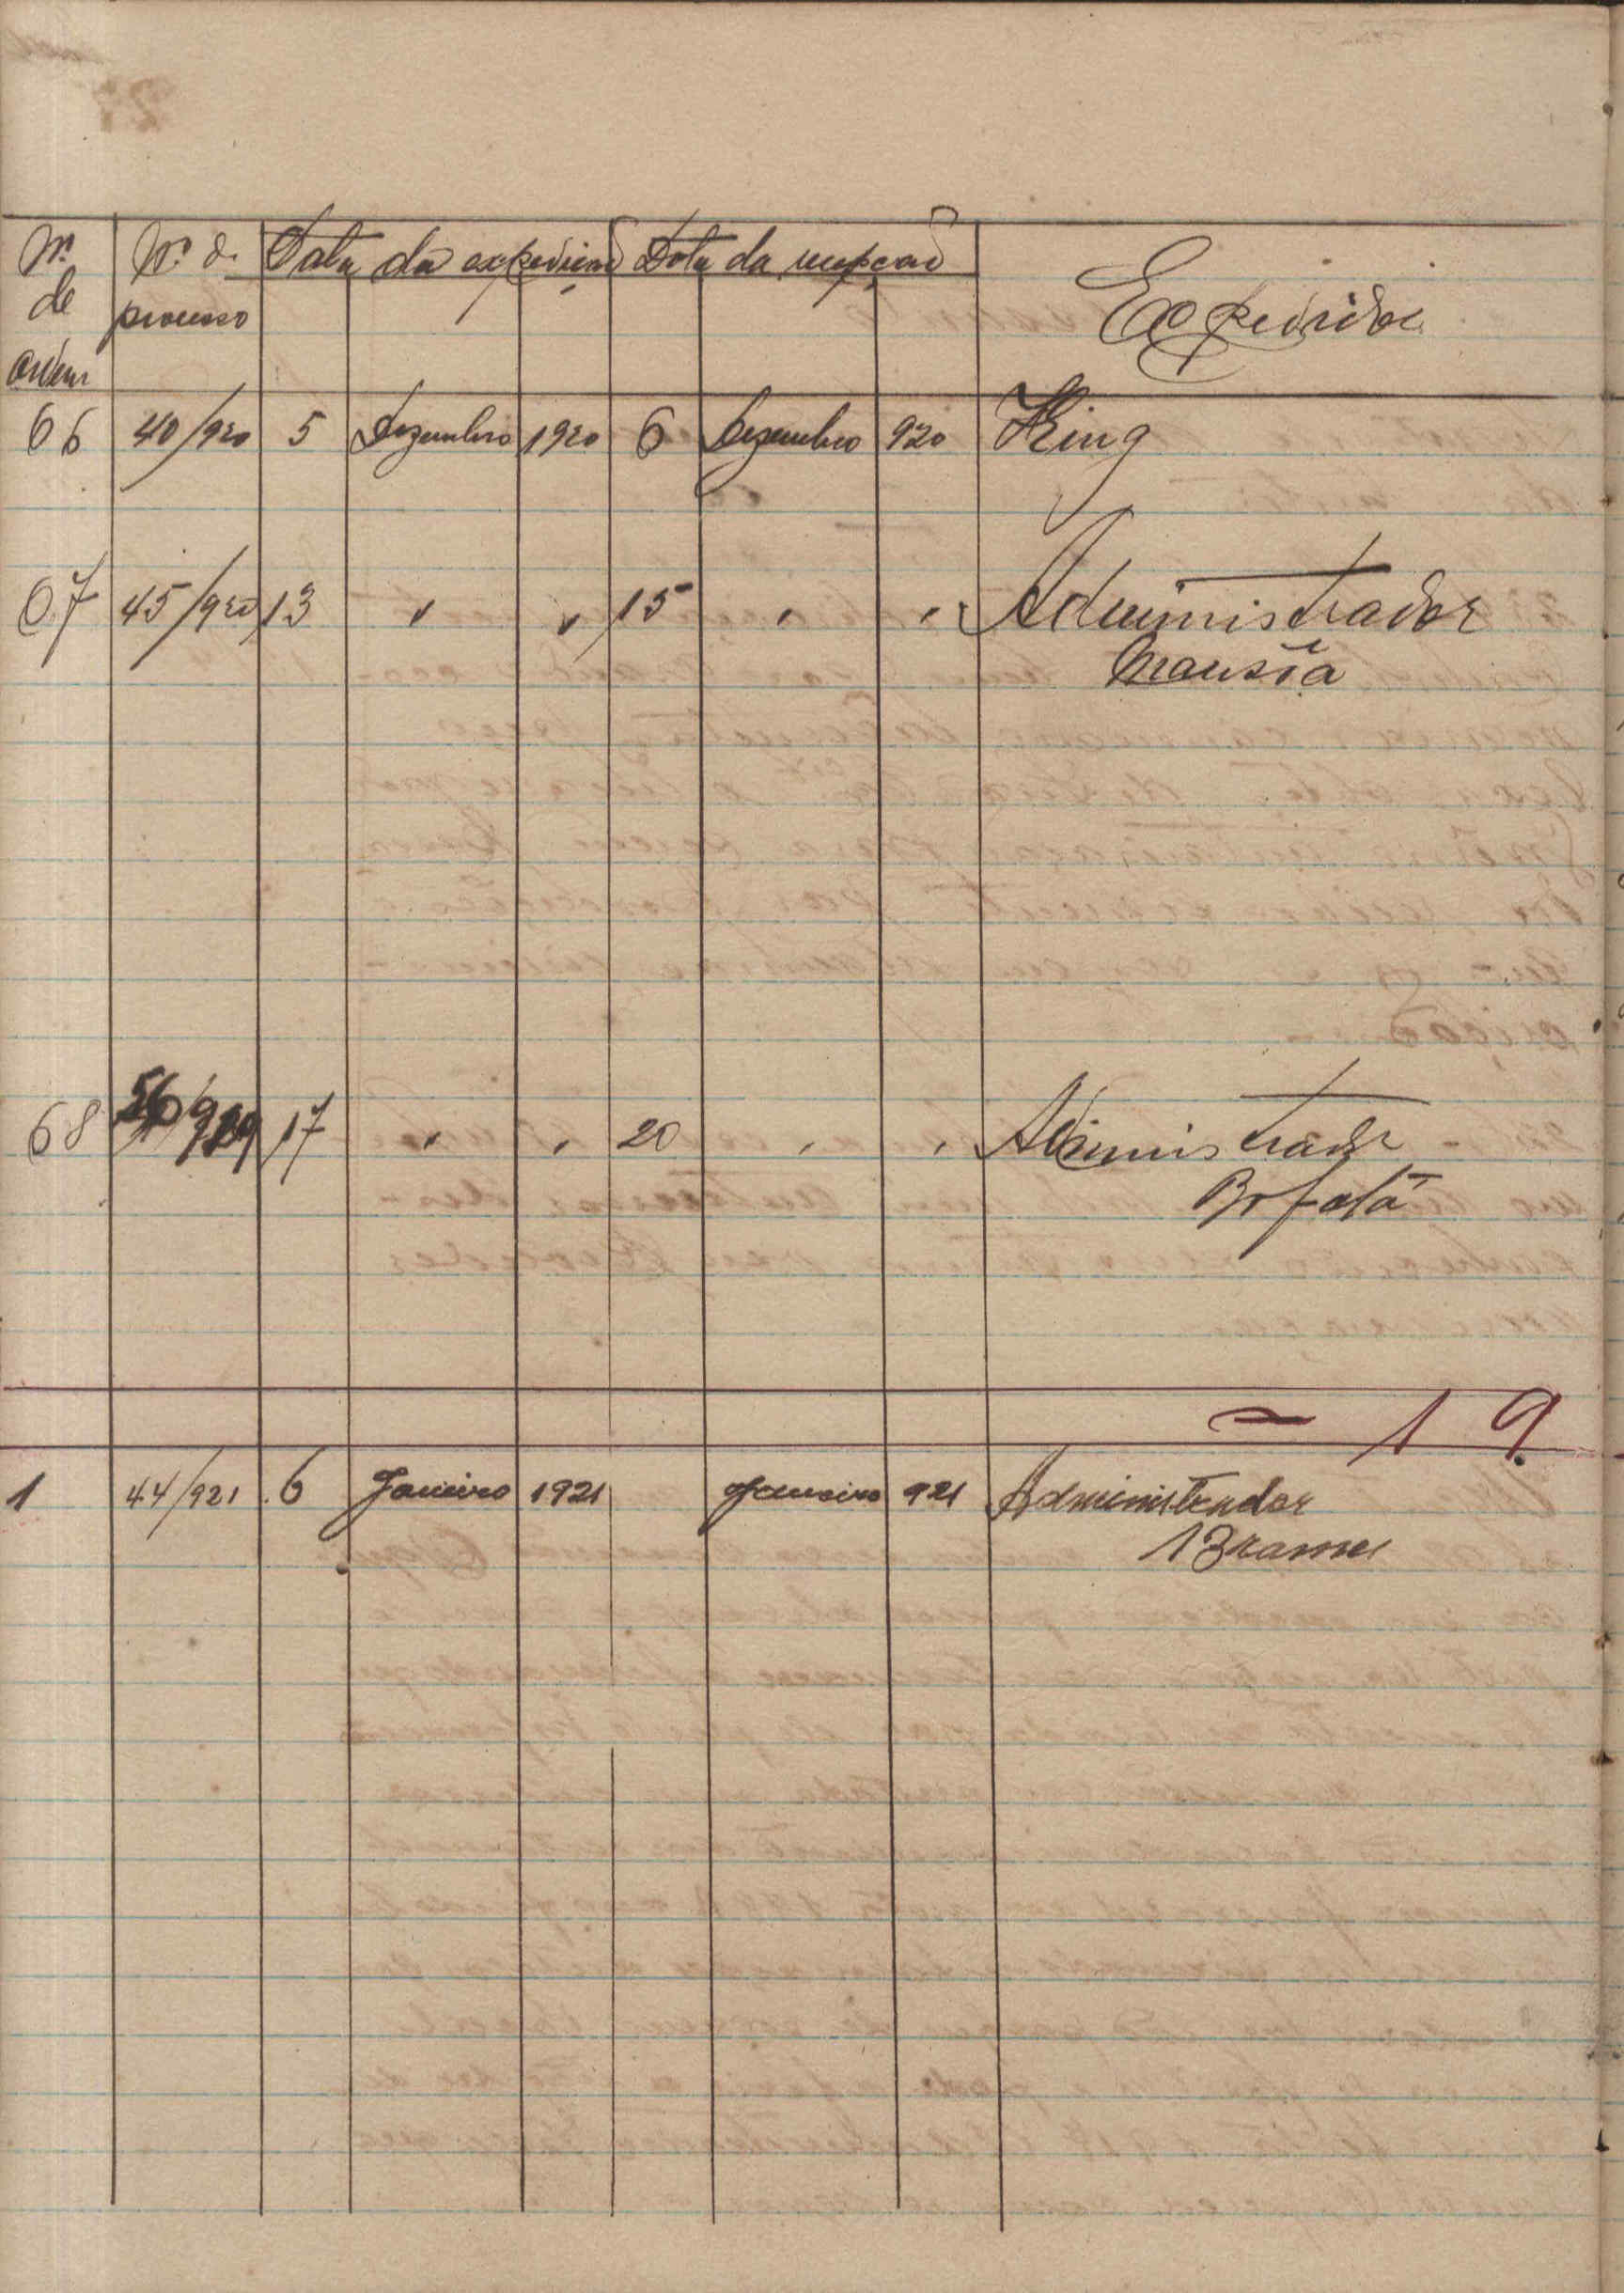 Nº de ordem | Nº de processo | Data da expedição | Data da recepção | Expedidor
66 | 40/920 | 5 | Dezembro | 1920 | 6 | Dezembro | 920 | King
67 | 45/920 | 13 | " | " | 15 | " | " | Administrador
Mansôa
68 | 17 | " | " | 20 | " | " | Administrador
Bafatá
= 19
1 | 44/921 | 6 | Janeiro | 1921 | Janeiro | 921 | Administrador
Brames